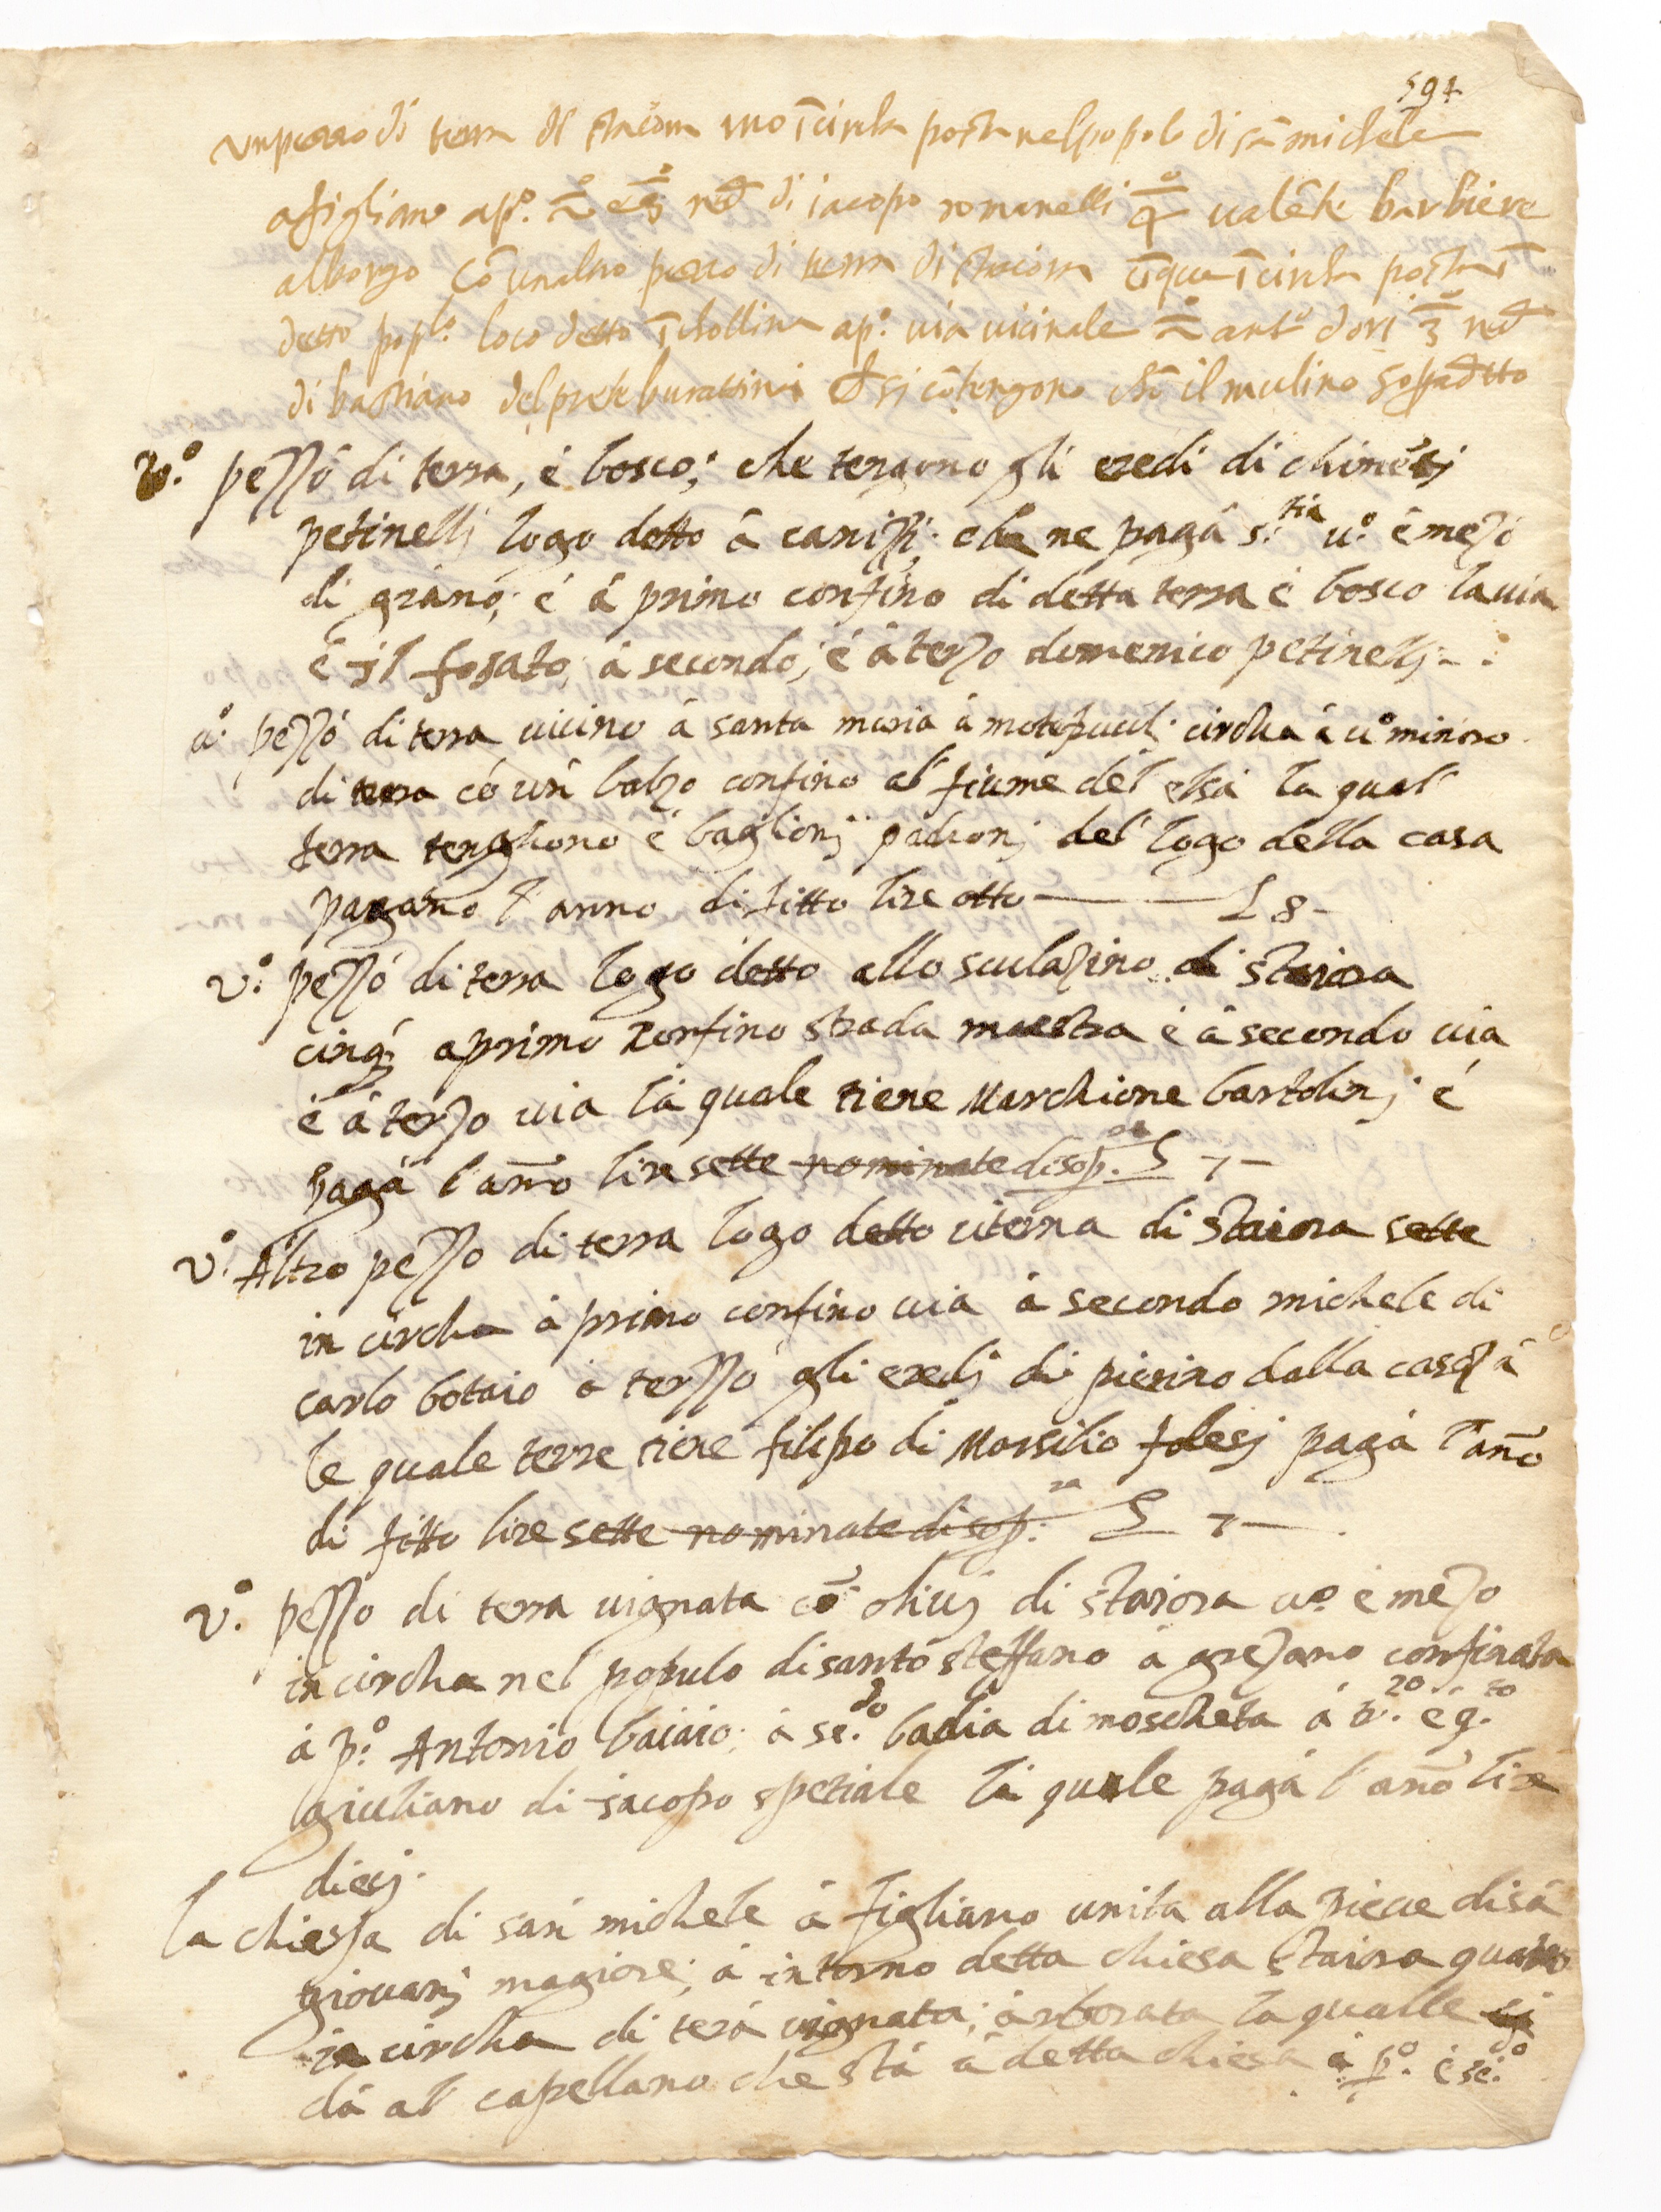 597
un pezzo di terra di staiora uno ĩ circha posta nel popolo di sã michele
afigliano ap.º 2º e 3º red di iacopo romanelli 4º valẽte barbiere
alborgo cõ unaltro pezzo di terra di staiora cĩque ĩ circha posta ĩ
detto pop.lo loco detto ĩ chollina ap.º via vicinale 2º antº dori 3º red
di bastiano del prete burattini che si cõtengono chõ il mulino sopradetto
v.º pezzó di terra, é bosco; che tengono gli eredi di
petinellj logo detto á che ne pagá s.tia u.º é mezo
di granó; é á primo confino di detta terra é bosco la uia
é il fosato; á secondo; é á terzo domenico petinellj
u.º pezzó di terra uicino á santa maria á circha á uº
di terra có un balzo confino al fiume del elsa la qual
terra tenghono é baglionj padronj del logo della casa
pagano l anno di fitto lire otto — £ 8 —
v.º pezzó di terra logo detto allo di staiora
cinq; a primo confino strada maestra é á secondo uia
é á terzo uia lá quale tiene Marchione bartolinj é
pagá l año lire sette nominate disop.ra £ 7 —
v.º Altro pezzo di terra logo detto citerna di staiora sette
in circha á primo confino uia á secondo michele di
carlo botaio á terzzó gli eredj di pierino dalla
le quale terre tiene filipo di Marsilio pagá l año
di fitto lire sette nominate di sop.ra £ 7 —
v.º pezzo di terra uignata cõ oliuj di staiora u.º é mezo
in circha nel populo di santó steffano á grezano confinata
á p.º Antonio baiaio; á se.do badia di moscheta á t.zo é q.to
giuliano di iacopo spetiale lá quale pagá l año lire
diecj.
la chiesa di san michele á figliano unita alla pieue di sá
giouanj magiore; á intorno detta chiesa staiora quatro
in circha di terá uignata; arborata la qualle si
dá al capellano che stá á detta chiesa á p.º é se.do